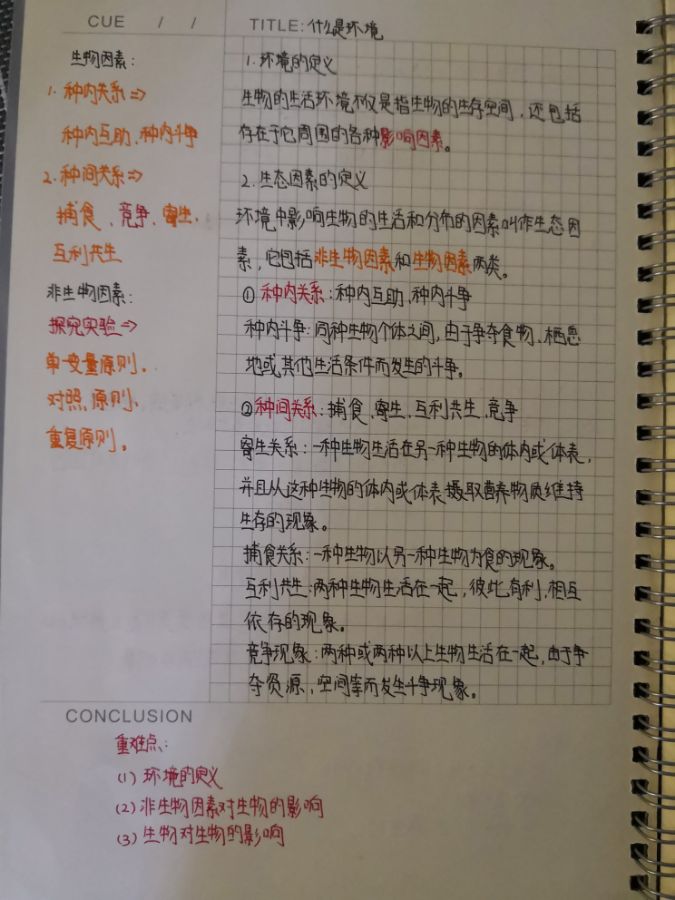 CUE / /
TITLE: 什么是环境
生物因素:
1. 种内关系=>
种内互助、种内斗争
2. 种间关系=>
捕食、竞争、寄生、
互利共生
非生物因素:
探究实验=>
单一变量原则、
对照原则、
重复原则。
1. 环境的定义
生物的生活环境不仅是指生物的生存空间，还包括
存在于它周围的各种影响因素。
2. 生态因素的定义
环境中影响生物的生活和分布的因素叫作生态因
素，它包括非生物因素和生物因素两类。
① 种内关系: 种内互助、种内斗争
种内斗争: 同种生物个体之间，由于争夺食物、栖息
地或其他生活条件而发生的斗争。
②种间关系: 捕食、寄生、互利共生、竞争
寄生关系: 一种生物生活在另一种生物的体内或体表，
并且从这种生物的体内或体表摄取营养物质维持
生存的现象。
捕食关系: 一种生物以另一种生物为食的现象。
互利共生: 两种生物生活在一起，彼此有利、相互
依存的现象。
竞争现象: 两种或两种以上生物生活在一起，由于争
夺资源、空间等而发生斗争现象。
CONCLUSION
重难点:
(1) 环境的定义
(2) 非生物因素对生物的影响
(3) 生物对生物的影响